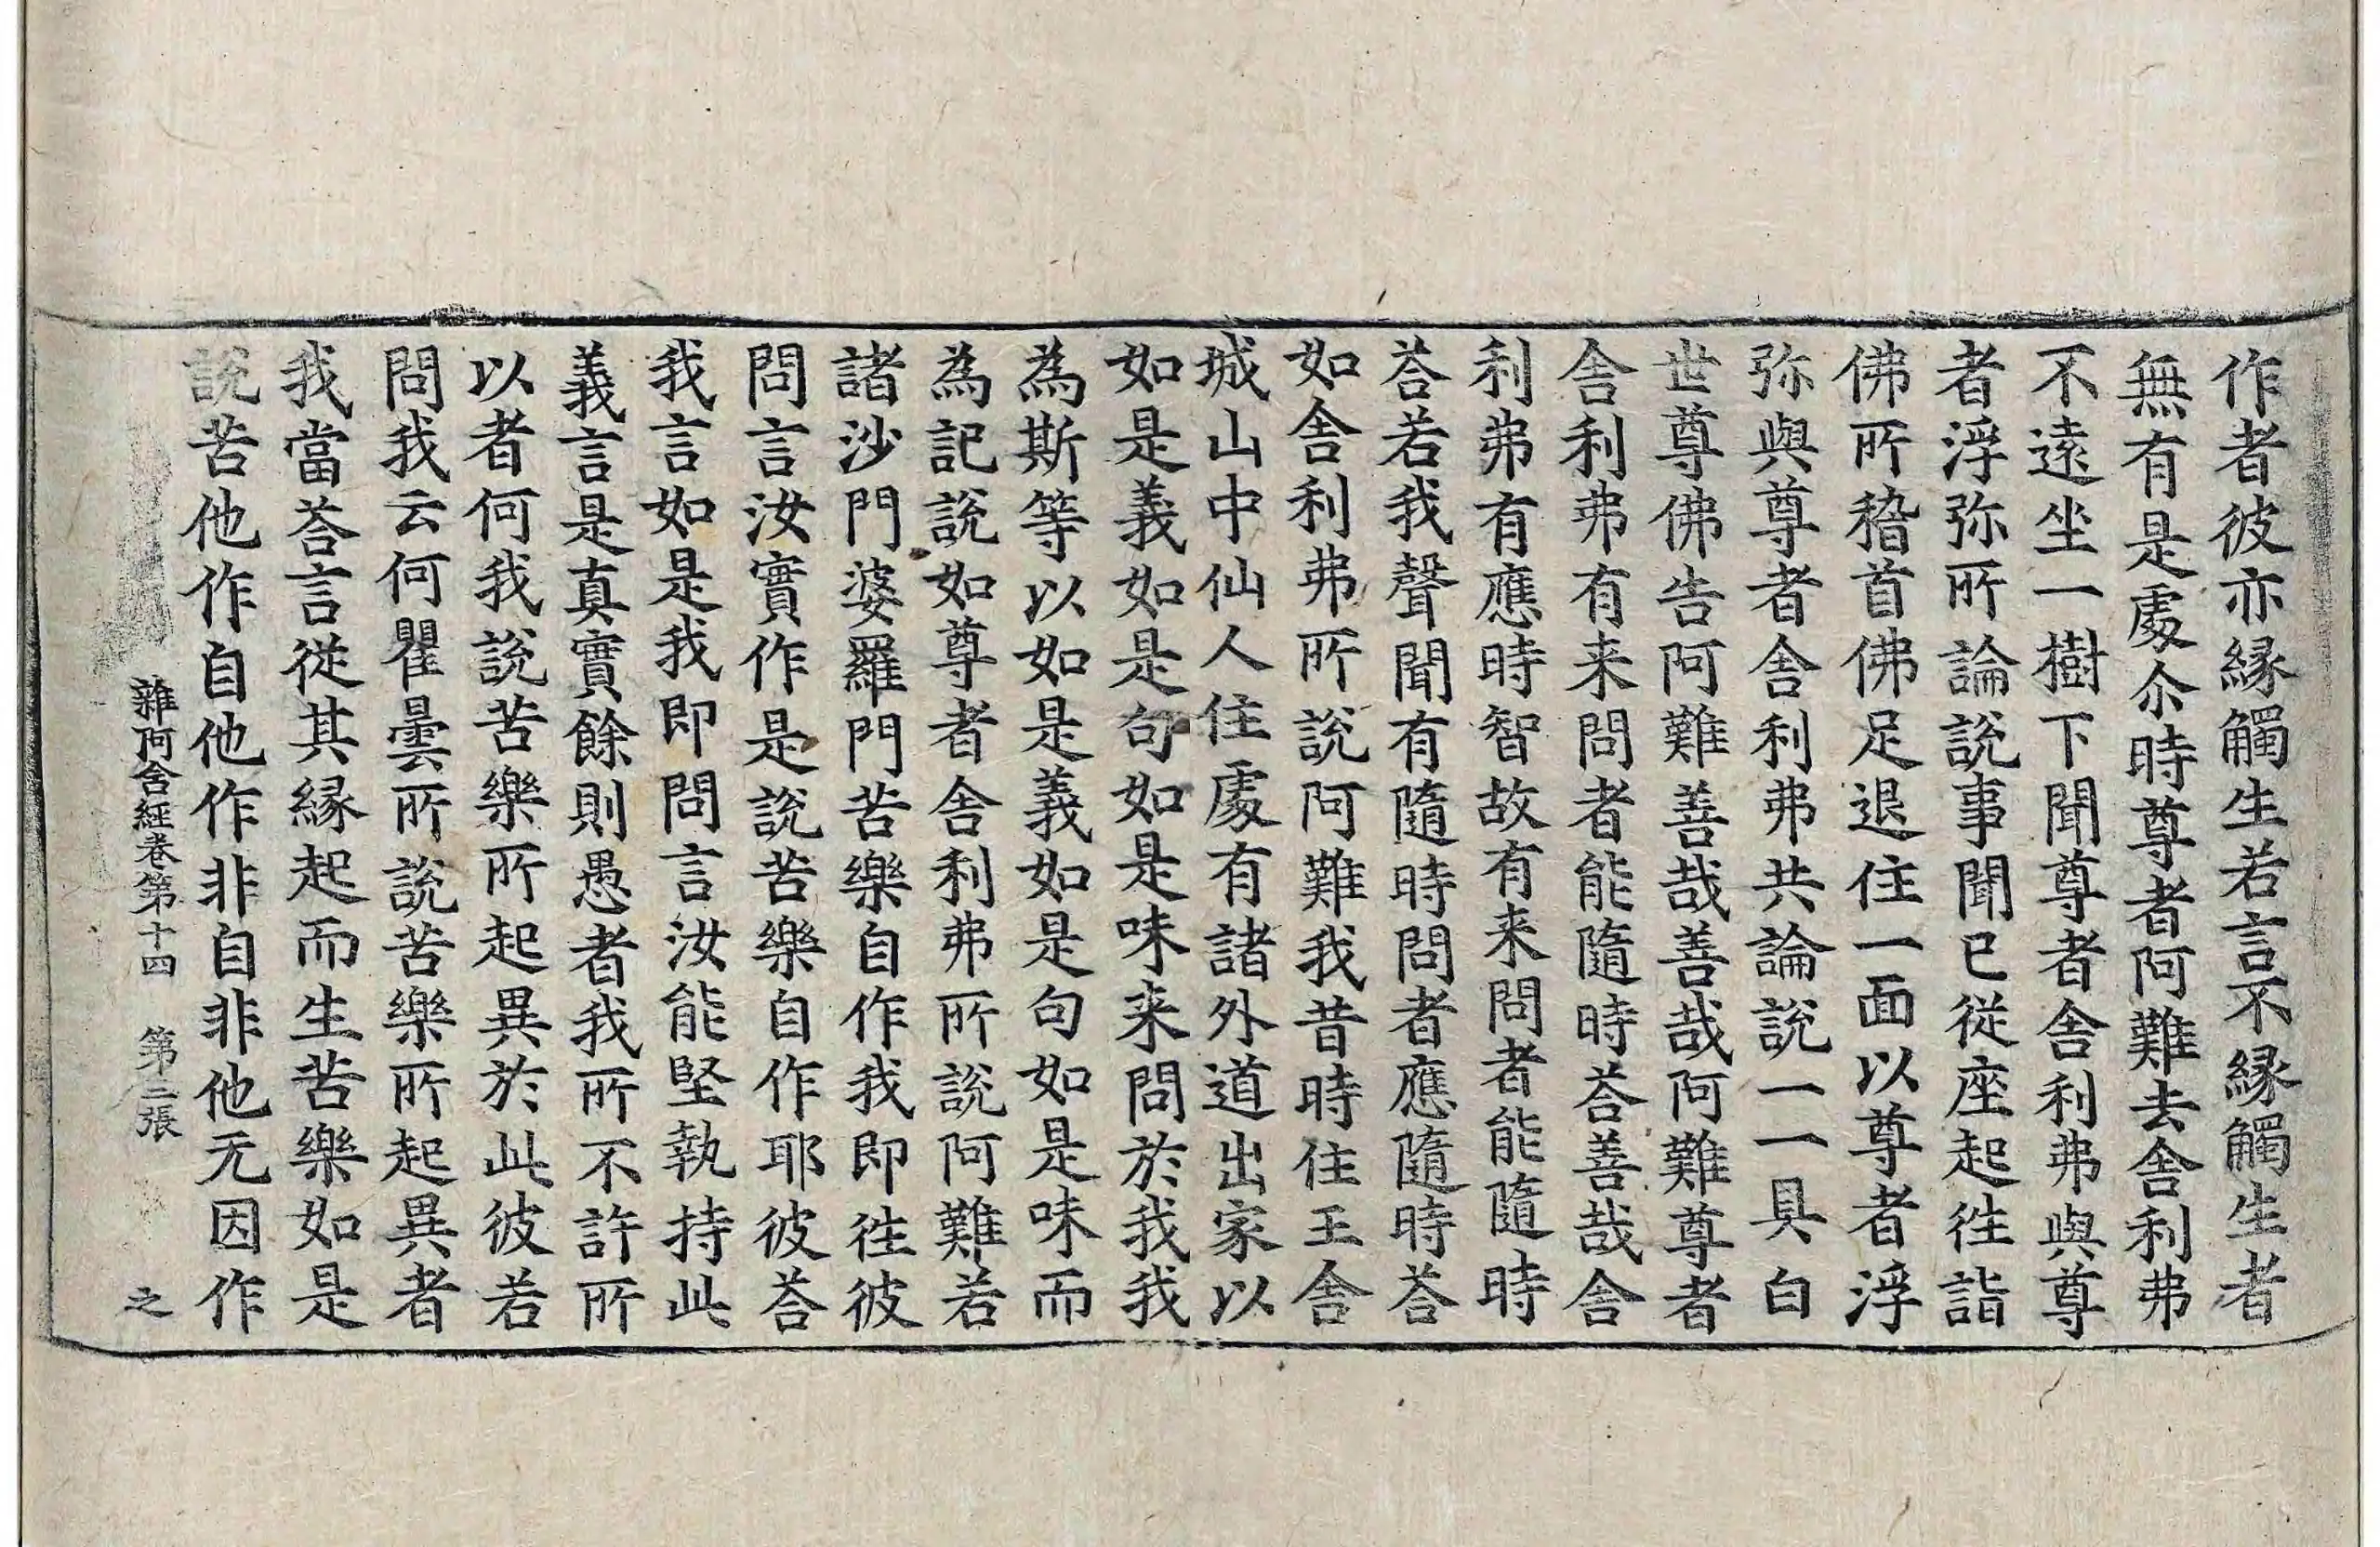 作者彼亦縁觸生若言不縁觸生者
無有是處尒時尊者阿難去舍利弗
不遠坐一樹下聞尊者舍利弗與尊
者浮弥所論說事聞已從座起徃詣
佛所稽首佛足退住一面以尊者浮
弥與尊者舍利弗共論說一一具白
世尊佛告阿難善哉善哉阿難尊者
舍利弗有来問者能隨時荅善哉舍
利弗有應時智故有来問者能隨時
荅若我聲聞有隨時問者應隨時荅
如舍利弗所說阿難我昔時住王舍
城山中仙人住處有諸外道出家以
如是義如是句如是味来問於我我
為斯等以如是義如是句如是味而
為記說如尊者舍利弗所說阿難若
諸沙門婆羅門苦樂自作我即徃彼
問言汝實作是說苦樂自作耶彼荅
我言如是我即問言汝能堅執持此
義言是真實餘則愚者我所不許所
以者何我說苦樂所起異於此彼若
問我云何瞿曇所說苦樂所起異者
我當荅言從其縁起而生苦樂如是
說苦他作自他作非自非他无因作
雜阿含経卷第十四　第三張　之